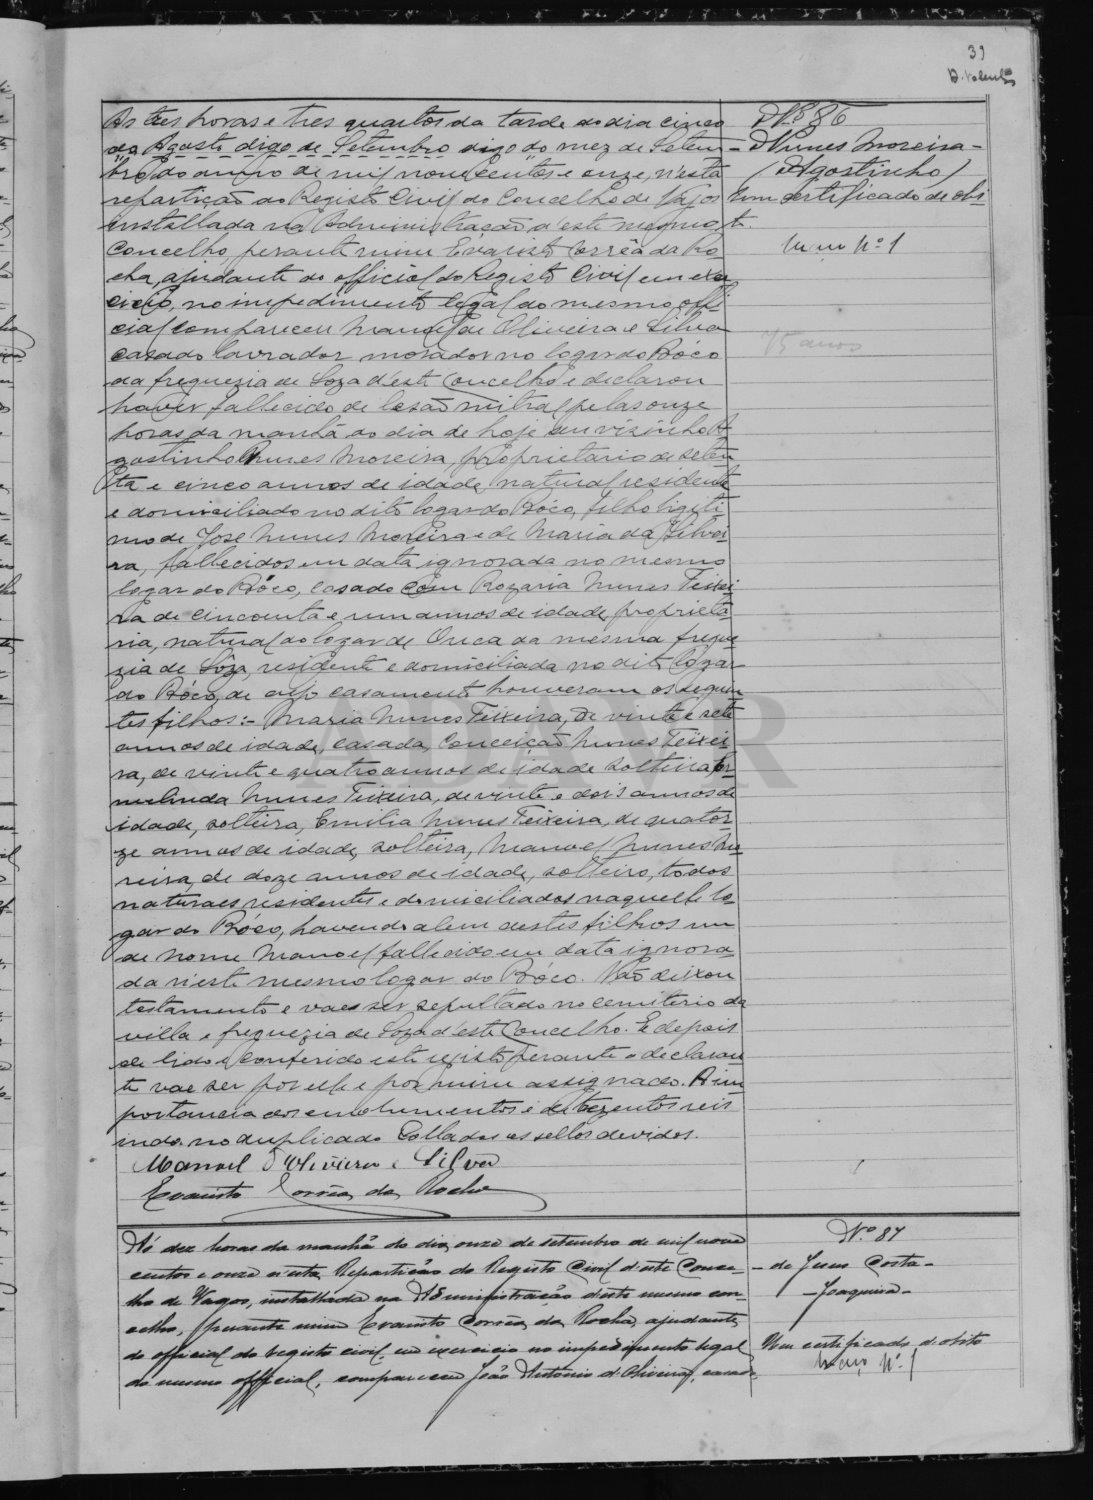 39
As tres horas e tres quartos da tarde do dia cinco
de Agosto digo de Setembro digo do mez de Setem-
bro do anno de mil novecentos e onze, n'esta
repartição do Registo Civil do Concelho de Vagos
installada na Administração d'este mesmo
Concelho, perante mim Evaristo Corrêa da Ro-
cha, ajudante do official do Registo Civil em exer-
cicio, no impedimento legal do mesmo offi-
cial compareceu Manoel de Oliveira e Silva
casado lavrador morador no logar do Bóco
da freguezia de Soza d'este Concelho e declarou
haver fallecido de lesão mitral pelas onze
horas da manhã do dia de hoje seu visinho A-
gostinho Nunes Moreira, proprietario de seten-
ta e cinco annos de idade, natural residente
e domiciliado no dito logar do Bóco, filho ligiti-
mo de José Nunes Moreira e de Maria da Silvei-
ra, fallecidos em data ignorada no mesmo
logar do Bóco, casado com Rozaria Nunes Teixei-
ra de cincoenta e um annos de idade, proprieta-
ria, natural do logar de Ouca da mesma fregue-
zia de Sôza, residente e domiciliada no dito logar
do Bóco, de cujo casamento houveram os seguin-
tes filhos:- Maria Nunes Teixeira, de vinte e sete
annos de idade, casada, Conceição Nunes Teixei-
ra, de vinte e quatro annos de idade solteira,
Nunes Teixeira, de vinte e dois annos de
idade, solteira, Emilia Nunes Teixeira, de quator-
ze annos de idade, solteira, Manoel Nunes Mo-
reira, de doze annos de idade, solteiro, todos
naturaes residentes e domiciliados naquelle lo-
gar do Bóco, havendo alem destes filhos um
de nome Manoel fallecido em data ignora-
da n'este mesmo logar do Bóco. Não deixou
testamento e vae ser sepultado no cemiterio da
villa e freguezia de Soza d'este Concelho. E depois
de lido e conferido este registo perante o declaran-
te vae ser por elle e por mim assignado. A im-
portancia dos emolumentos é de trezentos reis
indo no duplicado Collados os sellos devidos.
Manoel d'Oliveira e Silva
Evaristo Corrêa da Rocha
Nº 86
- Nunes Moreira -
(Agostinho)
Um certificado de obi-
to.
Nº 1
75 anos
Ás dez horas da manhã do dia onze de setembro de mil nove
centos e onze n'esta Repartição do Registo Civil d'este Conce-
lho de Vagos, installada na Administração d'este mesmo con-
celho, perante mim Evaristo Corrêa da Rocha, ajudante
do official do registo civil em exercicio no impedimento legal
do mesmo official, compareceu João Antonio d'Oliveira, casado,
Nº 87
- de Jesus Costa -
- Joaquina -
Um certificado d'obito
Maço Nº 1
ADAVR